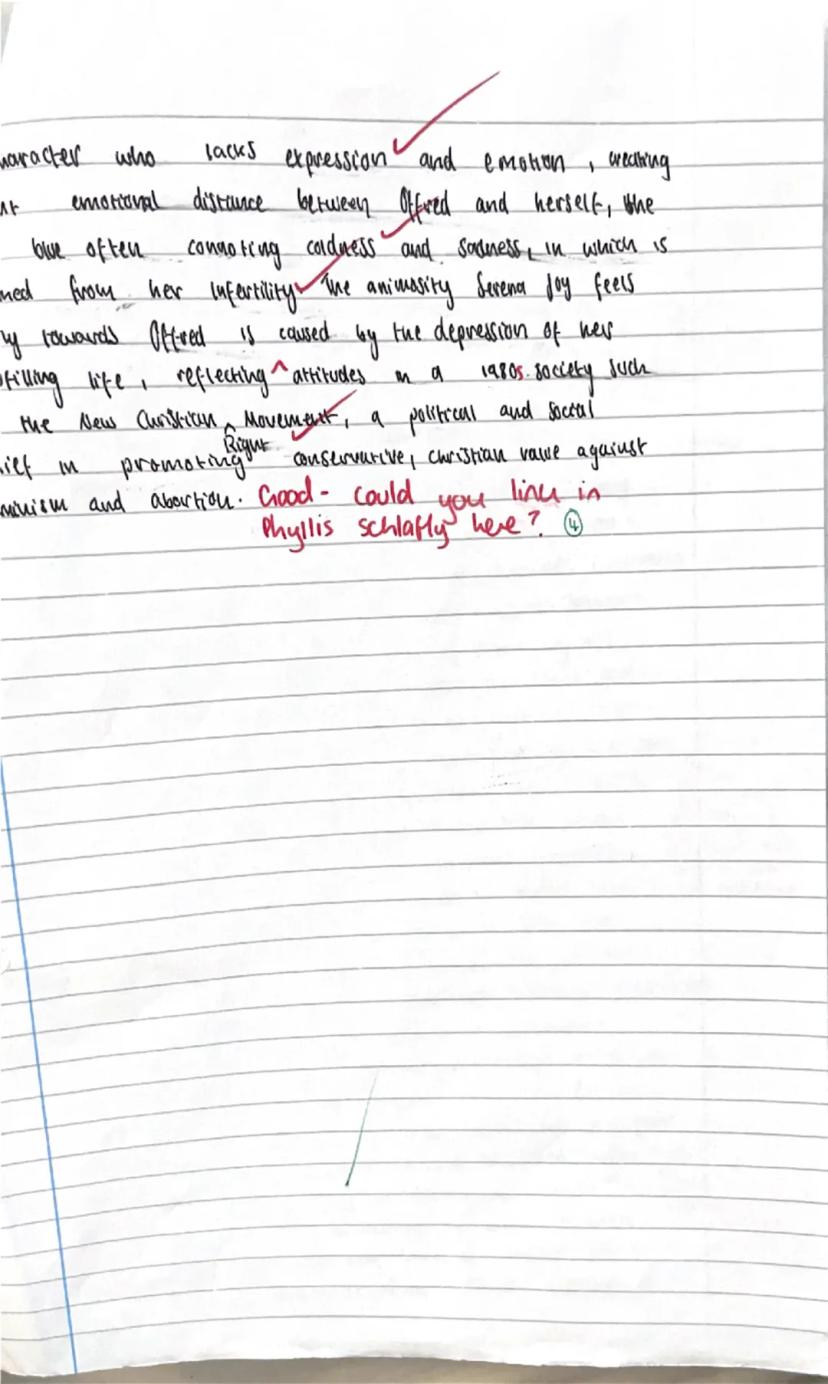 haracter who lacks expression and emotion, creating
emotional distance between Offred and herself, the
blue often connoting coldness and sadness, in which is
med from her infertility. The animosity Serena Joy feels
ly towards Offred is caused by the depression of her
filling life, reflecting ^ attitudes in a 1980s society such
the New Christian ^ Movement, a political and social
Right
lief in promoting conservative, christian value against
minism and abortion. Good - could you link in
Phyllis schlafly here? ④